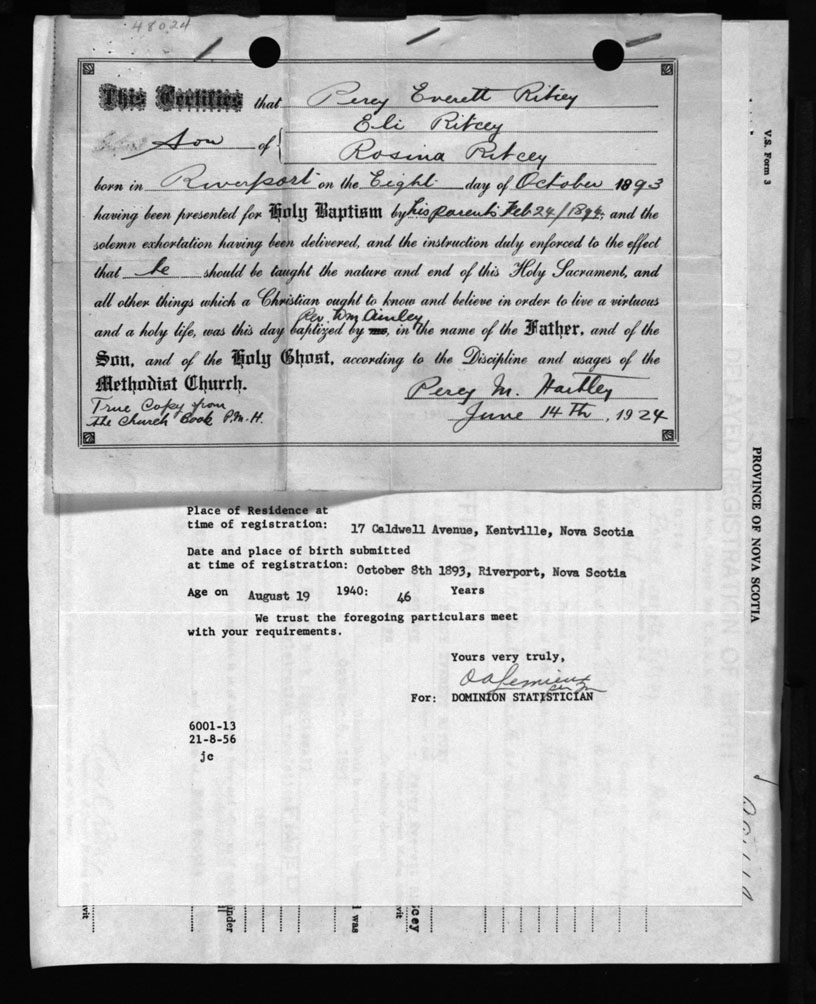 48024
This Certifies that Percy Everett Ritcey
Eli Ritcey
Son of
Rosina Ritcey
born in Riverport on the Eight day of October 1893
having been presented for Holy Baptism by his parents Feb 24/1894 and the
solemn exhortation having been delivered, and the instruction duly enforced to the effect
that he should be taught the nature and end of this Holy Sacrament, and
all other things which a Christian ought to know and believe in order to live a virtuous
Rev. Wm Ainley
and a holy life, was this day baptized by me, in the name of the Father, and of the
Son, and of the Holy Ghost, according to the Discipline and usages of the
Methodist Church.
Percy M. Hartley
True Copy from
the Church Book P.M.H.
June 14th, 1924
Place of Residence at
time of registration: 17 Caldwell Avenue, Kentville, Nova Scotia
Date and place of birth submitted
at time of registration: October 8th 1893, Riverport, Nova Scotia
Age on August 19 1940: 46 Years
We trust the foregoing particulars meet
with your requirements.
Yours very truly,
For: DOMINION STATISTICIAN
6001-13
21-8-56
jc
V.S. Form 3
PROVINCE OF NOVA SCOTIA